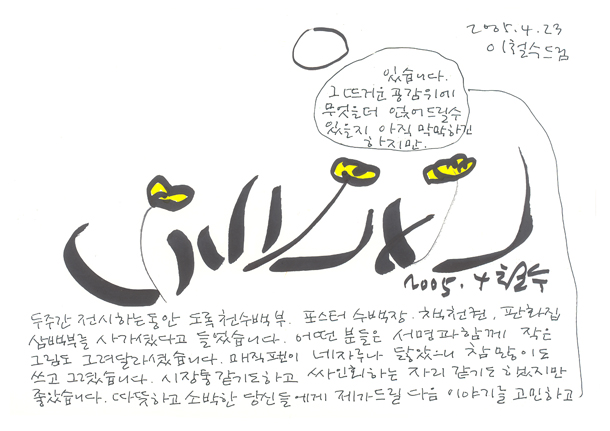 두주간 전시하는동안 도록 천수백부. 포스터 수백장. 책천권, 판화집
삼백부를 사가셨다고 들었습니다. 어떤 분들은 서명과함께 작은
그림도 그려달라셨습니다. 매직펜이 네자루나 닳았으니 참 많이도
쓰고 그렸습니다. 시장통같기도하고 싸인회하는 자리 같기도 했지만
좋았습니다. 따뜻하고 소박한 당신들에게 제가드릴 다음 이야기를 고민하고
있습니다.
그 뜨거운 공감위에
무엇을더 얹어드릴수
있을지 아직 막막하긴
하지만.
2005.4.23
이철수드림
2005. 4 철수